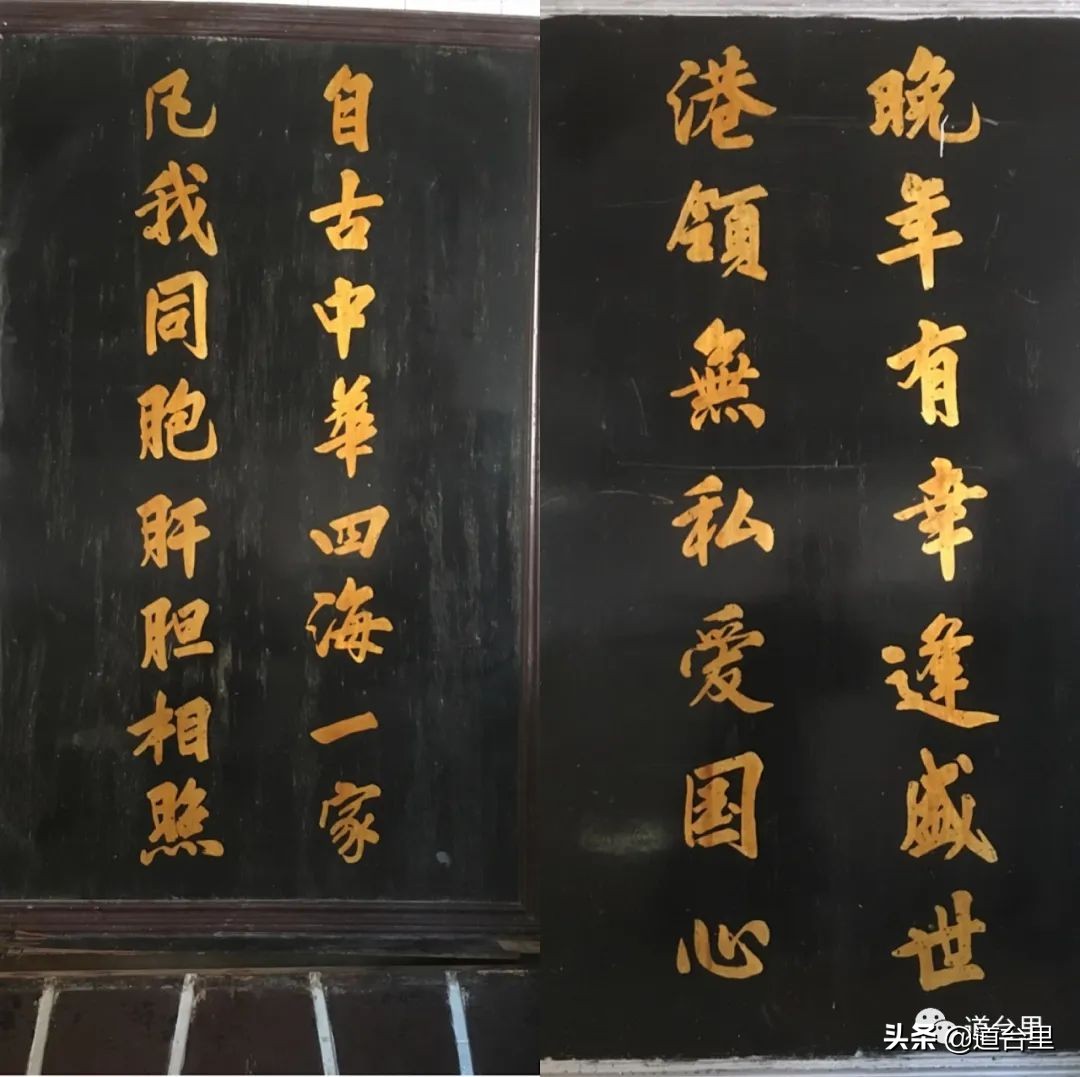 自古中華四海一家
凡我同胞肝胆相照
晚年有幸逢盛世
港領無私爱国心
道台里
头条@道台里